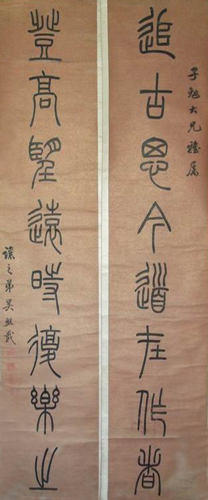 子勉大兄雅屬
追古思今道在作者
登高望遠時復樂之
讓之弟吳熙載